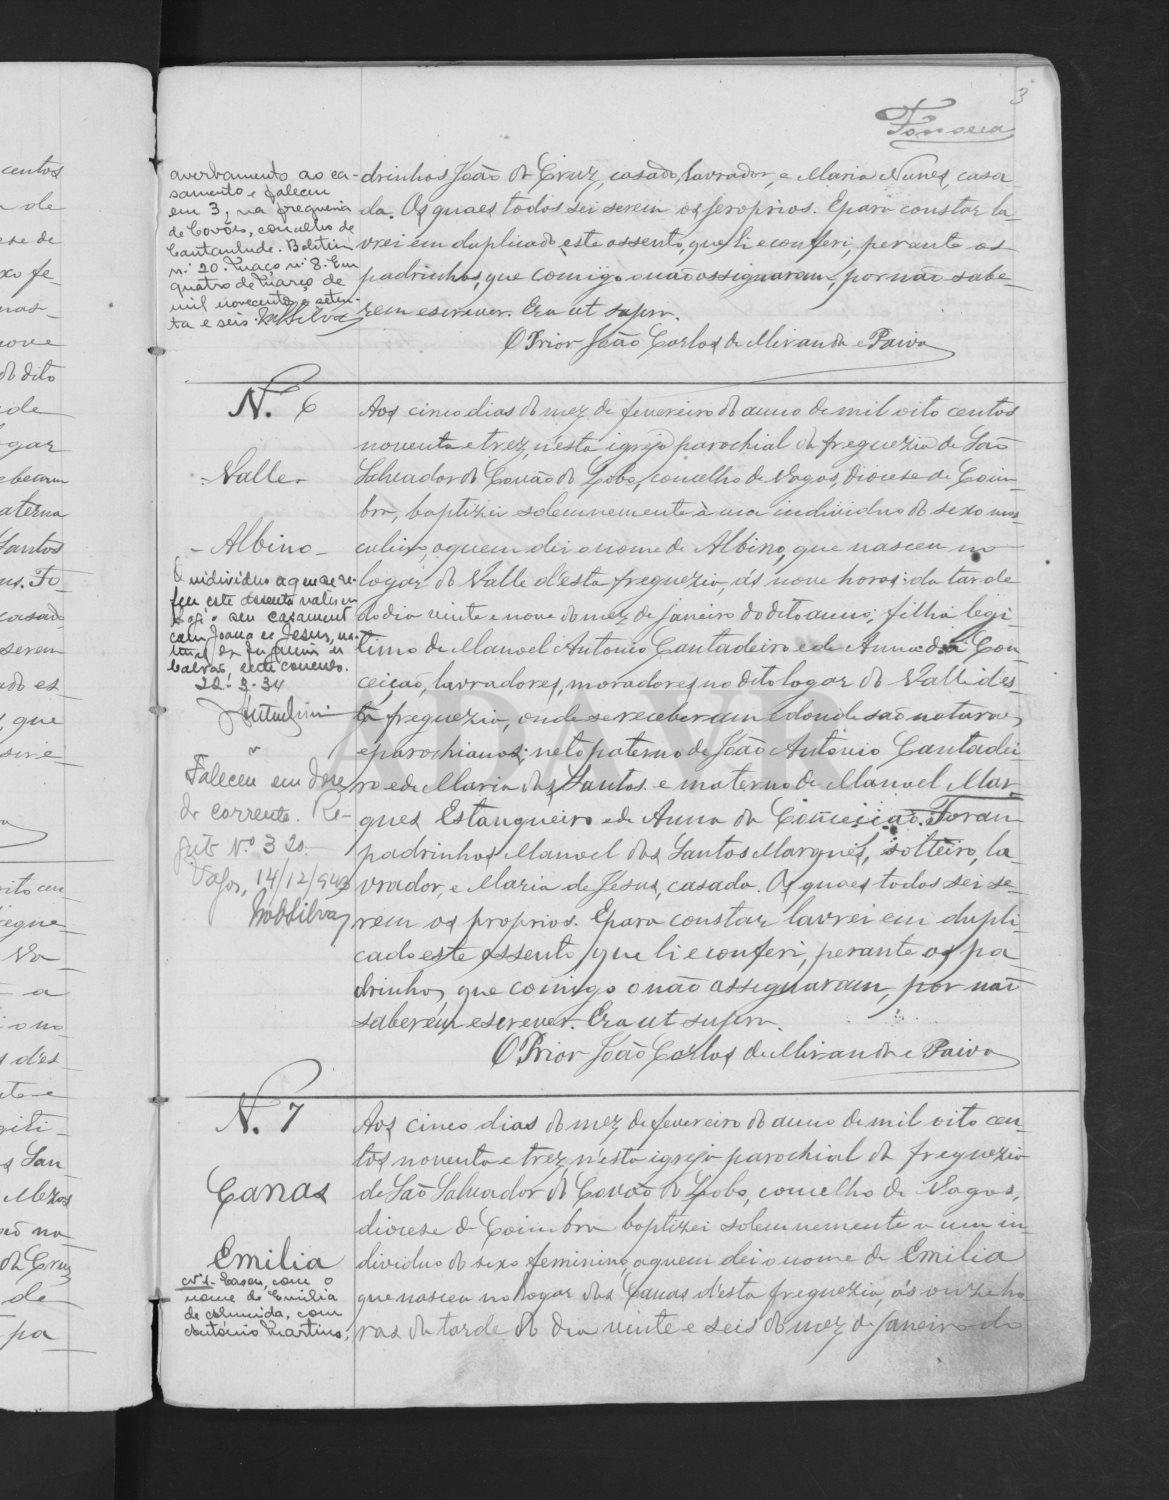 3
Fonseca
averbamento ao ca-
samento e faleceu
em 3, na freguesia
de Covões, concelho de
Cantanhede. Boletim
nº 20. Maço nº 8. Em
quatro de Março de
mil novecentos e seten-
ta e seis.
drinhos João da Cruz, casado, lavrador, e Maria Nunes, casa
da. Os quaes todos sei serem os proprios. E para constar la-
vrei em duplicado este assento, que li e conferi, perante os
padrinhos, que comigo o não assignaram, por não sabe-
rem escrever. Era ut supra.
O Prior João Carlos de Miranda e Paiva
N. 6
Valle
Albino
O individuo a que se re-
fere este assento
o seu casamento
com Joana de Jesus, na-
deste concelho.
22-3-34
Faleceu em doze
do corrente. Re-
gisto Nº 320.
Vagos, 14/12/943
MobSilva
Aos cinco dias do mez de fevereiro do anno de mil oito centos
noventa e trez, n'esta igreja parochial da freguezia de São
Salvador do Covão do Lobo, concelho de Vagos, diocese de Coim-
bra, baptizei solemnemente à um individuo do sexo mas-
culino, a quem dei o nome de Albino, que nasceu no
logar do Valle d'esta freguezia, ás nove horas da tarde
do dia vinte e nove do mez de janeiro do dito anno; filho legi-
timo de Manoel Antonio Cantadeiro e de Anna da Con-
ceição, lavradores, moradores no dito logar do Valle des-
ta freguezia, onde se receberam e donde são naturaes
e parochianos; neto paterno de João Antonio Cantadei-
ro e de Maria dos Santos e materno de Manoel Mar-
ques Estanqueiro e de Anna da Conceição. Foram
padrinhos Manoel dos Santos Marques, solteiro, la-
vrador, e Maria de Jesus, casada. Os quaes todos sei se-
rem os proprios. E para constar lavrei em dupli-
cado este assento, que li e conferi, perante os pa-
drinhos, que comigo o não assignaram, por não
saberem escrever. Era ut supra.
O Prior João Carlos de Miranda e Paiva
N. 7
Canas
Emilia
Nº 1- Casou, com o
nome de Emilia
de com
António Martins,
Aos cinco dias do mez de fevereiro do anno de mil oito cen-
tos noventa e trez, n'esta egreja parochial da freguezia
de São Salvador do Covão do Lobo, concelho de Vagos,
diocese de Coimbra baptizei solemnemente a um in-
dividuo do sexo feminino, a quem dei o nome de Emilia
que nasceu no logar das Canas d'esta freguezia, ás onze ho-
ras da tarde do dia vinte e seis do mez de janeiro do
ADAVR